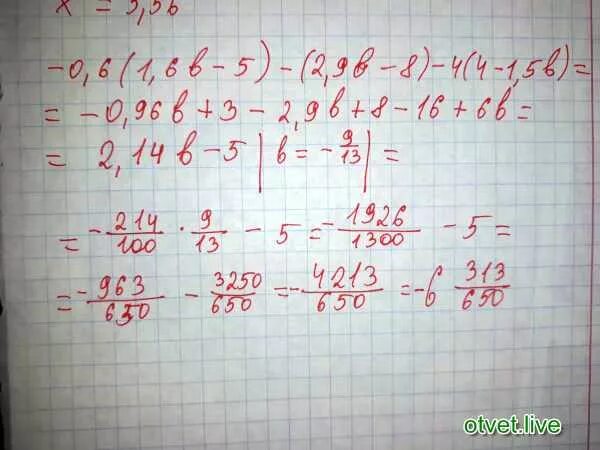 x = 3,5в
-0,6(1,6в-5)-(2,9в-8)-4(4-1,5в)=
= -0,96в+3-2,9в+8-16+6в=
= 2,14в-5 | в = -9/13 | =
= -214/100 · 9/13 - 5 = -1926/1300 - 5 =
= -963/650 - 3250/650 = -4213/650 = -6 313/650
otvet.live